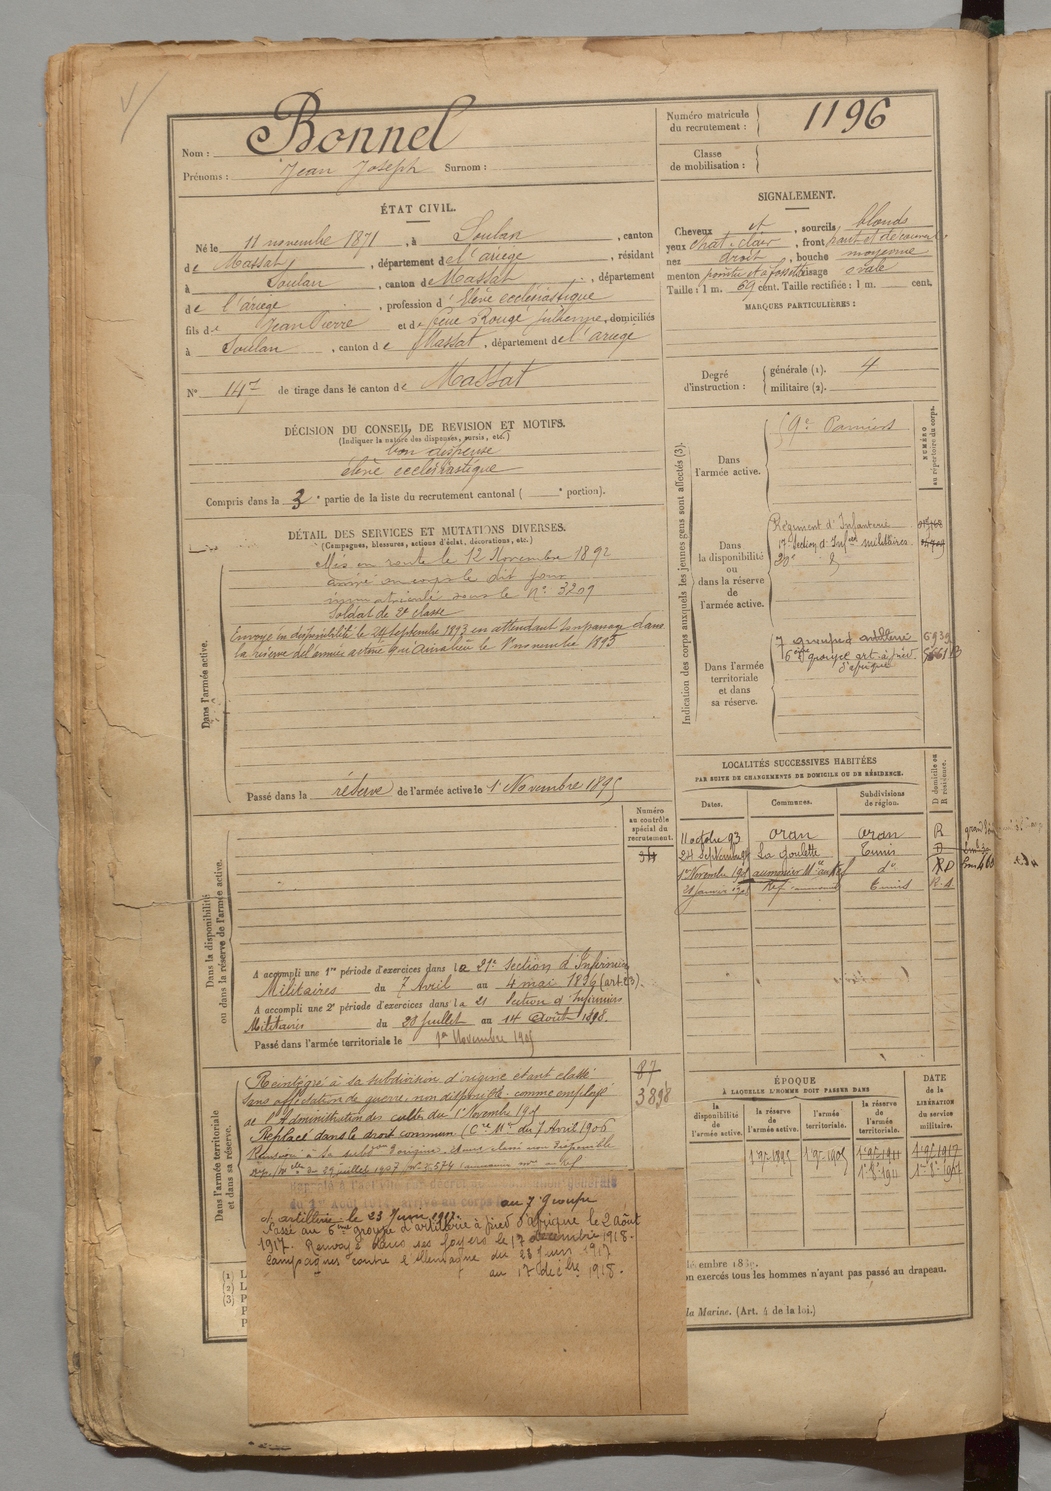 Nom : Bonnel
Prénoms : Jean Joseph Surnom :
Numéro matricule
du recrutement : 1196
Classe
de mobilisation :
ÉTAT CIVIL.
Né le 11 novembre 1871, à Soulan, canton
de Massat, département de l'ariege, résidant
à Soulan, canton de Massat, département
de l'ariège, profession d'élève ecclésiastique
fils de Jean Pierre et de feue Rouge Julienne, domiciliés
à Soulan, canton de Massat, département de l'ariege
N° 147 de tirage dans le canton de Massat
SIGNALEMENT.
Cheveux et, sourcils blonds
yeux chat. clair, front haut et découvert
nez droit, bouche moyenne
menton pointu et à fossette visage ovale
Taille : 1 m. 69 cent. Taille rectifiée : 1 m. cent.
MARQUES PARTICULIÈRES :
Degré
d'instruction :
générale (1). 4
militaire (2).
DÉCISION DU CONSEIL DE REVISION ET MOTIFS.
(Indiquer la nature des dispenses, sursis, etc.)
bon dispense
élève ecclésiastique
Compris dans la 3e partie de la liste du recrutement cantonal ( e portion).
DÉTAIL DES SERVICES ET MUTATIONS DIVERSES.
(Campagnes, blessures, actions d'éclat, décorations, etc.)
Dans l'armée active.
Mis en route le 12 Novembre 1892
arrivé au corps le dit jour
immatriculé sous le N° 3209
Soldat de 2e classe
Envoyé en disponibilité le 24 septembre 1893 en attendant son passage dans
la réserve de l'armée active qui aura lieu le 1er novembre 1895
Passé dans la réserve de l'armée active le 1er Novembre 1895
Indication des corps auxquels les jeunes gens sont affectés (3).
NUMÉRO
au répertoire du corps.
Dans
l'armée active.
9e Pamiers
Dans
la disponibilité
ou
dans la réserve
de
l'armée active.
Régiment d'Infanterie
17e Section d'Infers militaires
20e
Dans l'armée
territoriale
et dans
sa réserve.
7 groupe d'artillerie
6ème groupe art. à pied
d'afrique
LOCALITÉS SUCCESSIVES HABITÉES
PAR SUITE DE CHANGEMENTS DE DOMICILE OU DE RÉSIDENCE.
Dates. Communes. Subdivisions
de région. D domicile ou
R résidence.
11 octobre 93 Oran Oran R
24 Septembre La Goulette Tunis D
1er Novembre 1901 aumonier Mre au Kef do
21 Janvier Kef Tunis
Dans la disponibilité
ou dans la réserve de l'armée active.
Numéro
au contrôle
spécial du
recrutement.
A accompli une 1re période d'exercices dans la 21e Section d'Infirmiers
Militaires du 7 Avril au 4 mai 1896 (art 23).
A accompli une 2e période d'exercices dans la 21 Section d'Infirmiers
Militaires du 20 juillet au 14 Août 1898.
Passé dans l'armée territoriale le 1er Novembre 1905
Dans l'armée territoriale
et dans sa réserve.
Réintégré à sa subdivision d'origine étant classé
sans affectation de guerre non disponible comme employé
de l'Administration des cultes du 1er Novembre 1901
Replacé dans le droit commun (Cre Mlle du 7 Avril 1906
87
3898
Rappelé à l'activité par décret de mobilisation générale
du 1er Août 1914. Arrivé au corps au 7e groupe
d'artillerie le 23 Juin 1917.
Passé au 6ème groupe d'artillerie à pied d'Afrique le 2 août
1917. Renvoyé dans ses foyers le 17 decembre 1918.
Campagnes contre l'Allemagne du 23 Juin 1917
au 17 décbre 1918.
ÉPOQUE
À LAQUELLE L'HOMME DOIT PASSER DANS
DATE
de la
LIBÉRATION
du service
militaire.
la
disponibilité
de
l'armée active.
la réserve
de
l'armée active.
l'armée
territoriale.
la réserve
de
l'armée
territoriale.
1er 9bre 1895 1er 9bre 1905 1er 9bre 1911 1er 9bre 1917
on exercés tous les hommes n'ayant pas passé au drapeau.
la Marine. (Art. 4 de la loi.)